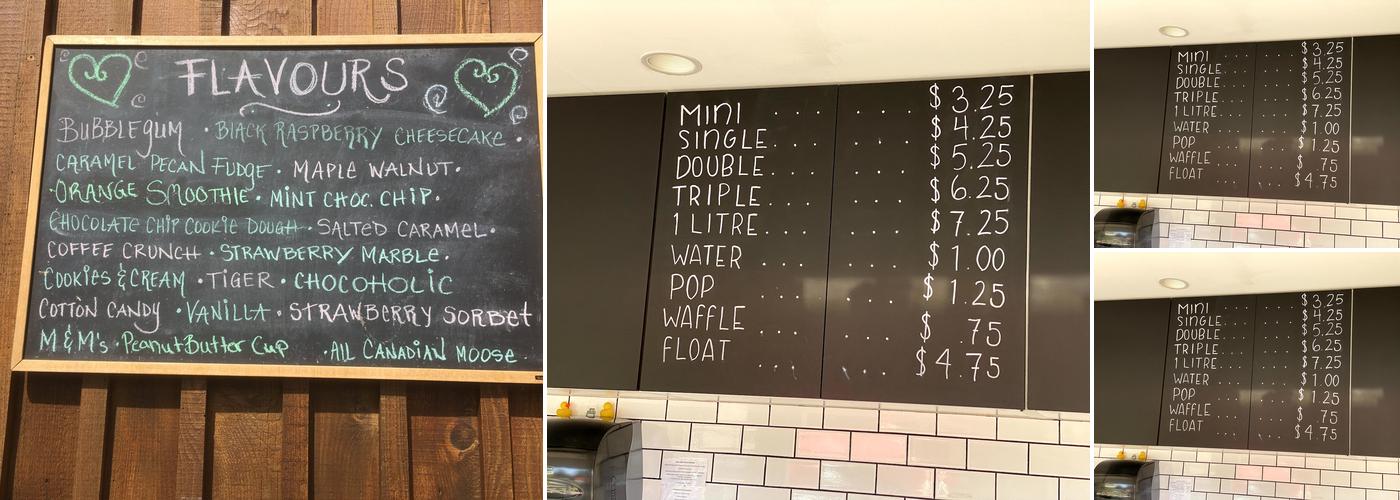 FLAVOURS
BUBBLEGUM · BLACK RASPBERRY CHEESECAKE ·
CARAMEL PECAN FUDGE · MAPLE WALNUT ·
· ORANGE SMOOTHIE · MINT CHOC. CHIP ·
CHOCOLATE CHIP COOKIE DOUGH · SALTED CARAMEL ·
COFFEE CRUNCH · STRAWBERRY MARBLE ·
COOKIES & CREAM · TIGER · CHOCOHOLIC
COTTON CANDY · VANILLA · STRAWBERRY SORBET
M & M's · Peanut Butter Cup · ALL CANADIAN MOOSE
MINI ... ... $3.25
SINGLE... ... $4.25
DOUBLE... ... $5.25
TRIPLE... ... $6.25
1 LITRE... ... $7.25
WATER ... ... $1.00
POP ... ... $1.25
WAFFLE ... ... $ .75
FLOAT ... ... $4.75
MINI ... ... $3.25
SINGLE... ... $4.25
DOUBLE... ... $5.25
TRIPLE... ... $6.25
1 LITRE... ... $7.25
WATER ... ... $1.00
POP ... ... $1.25
WAFFLE ... ... $ .75
FLOAT ... ... $4.75
MINI ... ... $3.25
SINGLE... ... $4.25
DOUBLE... ... $5.25
TRIPLE... ... $6.25
1 LITRE... ... $7.25
WATER ... ... $1.00
POP ... ... $1.25
WAFFLE ... ... $ .75
FLOAT ... ... $4.75